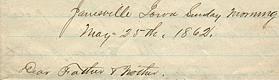 Janesville Iowa Sunday Morning
May 25th, 1862.
Dear Father & Mother.